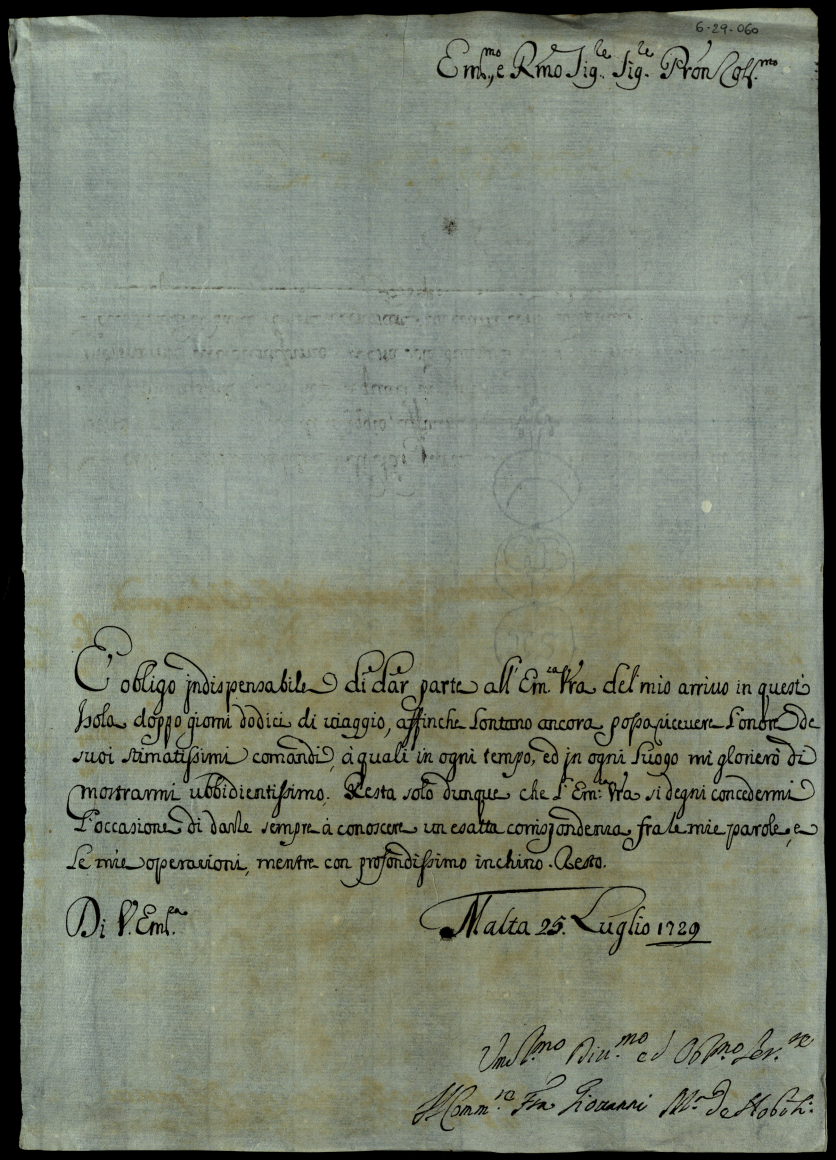 6-29-060
Em.mo e Rmo Sig.re Sig.re Pron Col.mo
E' obligo jndispensabile di dar parte all' Em.za Vra del mio arriuo in quest'
Isola doppo giorni dodici di uiaggio, affinche lontano ancora possa riceuere l'onore de
suoi stimatissimi comandi, à quali in ogni tempo, ed jn ogni luogo mi glorierò di
mostrarmi ubbidientissimo. Resta solo dunque che l'Em.a Vra si degni concedermi
l'occasione di darle sempre à conoscere un esatta corrispondenza fra le mie parole, e
le mie operazioni, mentre con profondissimo inchino. Resto.
Di V. Em.a
Malta 25. Luglio 1729
Um.mo Diu.mo ed Obl.mo Ser.re
Comm.re Fra Giovanni M.a de Nobili